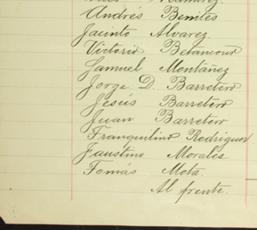 Ramirez
Andrés Benites
Jacinto Alvarez
Victorio Betancourt
Samuel Montañez
Jorge D. Barretero
Jesús Barretero
Juan Barretero
Tranquilino Rodriguez
Faustino Morales
Tomás Mota
Al frente.